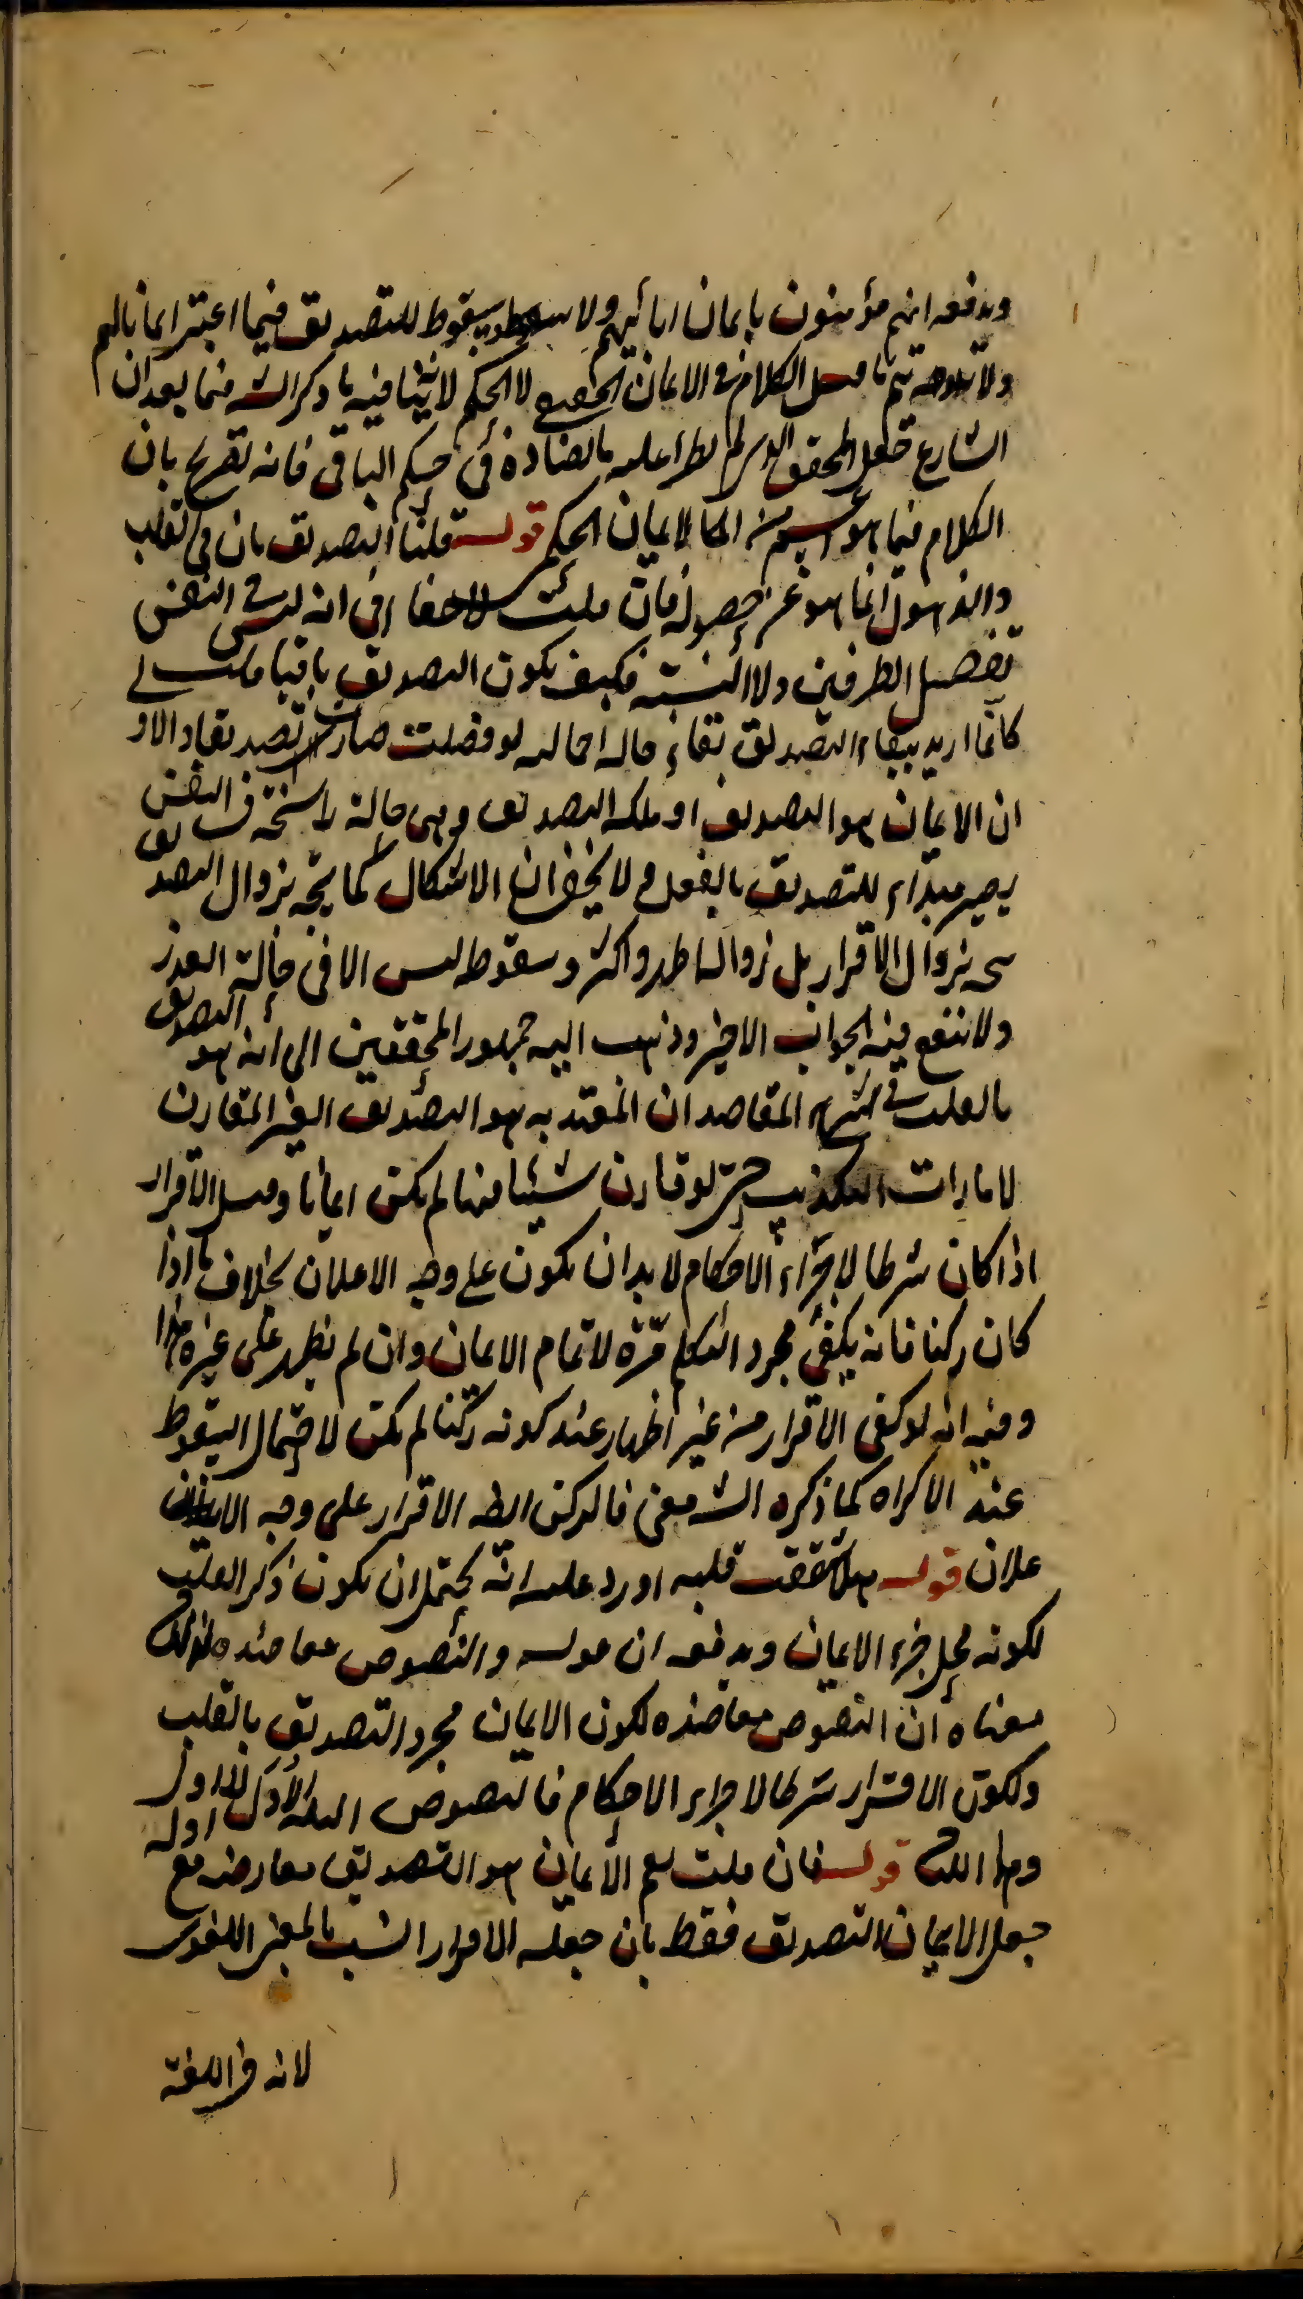 ويدفعه انهم مؤمنون بايمان ابائهم ولا سقوط للتصديق فيما اعتبر ايمانا لهم
ولا يتوجه ثم ما قيل الكلام في الايمان الحقيقي لا الحكمي لانه ينافيه ما ذكر الش فيما بعد ان
الشارع جعل المحقق الذي لم يطرأ عليه ما يضاده في حكم الباقي فانه تصريح بان
الكلام فيما هو اعم من الايمان الحكمي قوله قلنا التصديق باق في القلب
والذهول انما هو عن حصوله فان قلت لا خفاء في انه ليس في النفس
تفصيل الطرفين ولا النسبة فكيف يكون التصديق باقيا قلت
كانه اريد ببقاء التصديق بقاء حالة اجمالية لو فصلت صارت تصديقا والاو
ان الايمان هو التصديق او ملكة التصديق وهي حالة راسخة في النفس
يصير مبدأ للتصديق بالفعل ولا يخفى ان الاشكال كما يتجه بزوال التصديق
يتجه بزوال الاقرار بل زواله اظهر واكثر وسقوطه ليس الا في حالة العذر
ولا ينفع فيه الجواب الاخير وذهب اليه جمهور المحققين الى انه هو التصديق
بالقلب في شرح المقاصد ان المعتد به هو التصديق الغير المقارن
لامارات التكذيب حتى لو قارن شيئا منها لم يكن ايمانا وقيل الاقرار
اذا كان شرطا لاجراء الاحكام لا بد ان يكون على وجه الاعلان بخلاف ما اذا
كان ركنا فانه يكفي مجرد التكلم مرة لاتمام الايمان وان لم يظهر على غيره هذا
وفيه انه لو كفى الاقرار من غير اظهار عند كونه ركنا لم يكن لاحتمال السقوط
عند الاكراه كما ذكره الش معنى فالركن ايضا الاقرار على وجه
علان قوله هلا شققت قلبه اورد عليه انه يحتمل ان يكون ذكر القلب
لكونه محل جزء الايمان ويدفعه ان قوله والنصوص معاضدة لذلك
معناه ان النصوص معاضدة لكون الايمان مجرد التصديق بالقلب
ولكون الاقرار شرطا لاجراء الاحكام فالنصوص
قوله فان قلت نعم الايمان هو التصديق معارضه مع
جعل الايمان التصديق فقط بان جعله الاقرار انسب بالمعنى اللغوي
لانه في اللغة